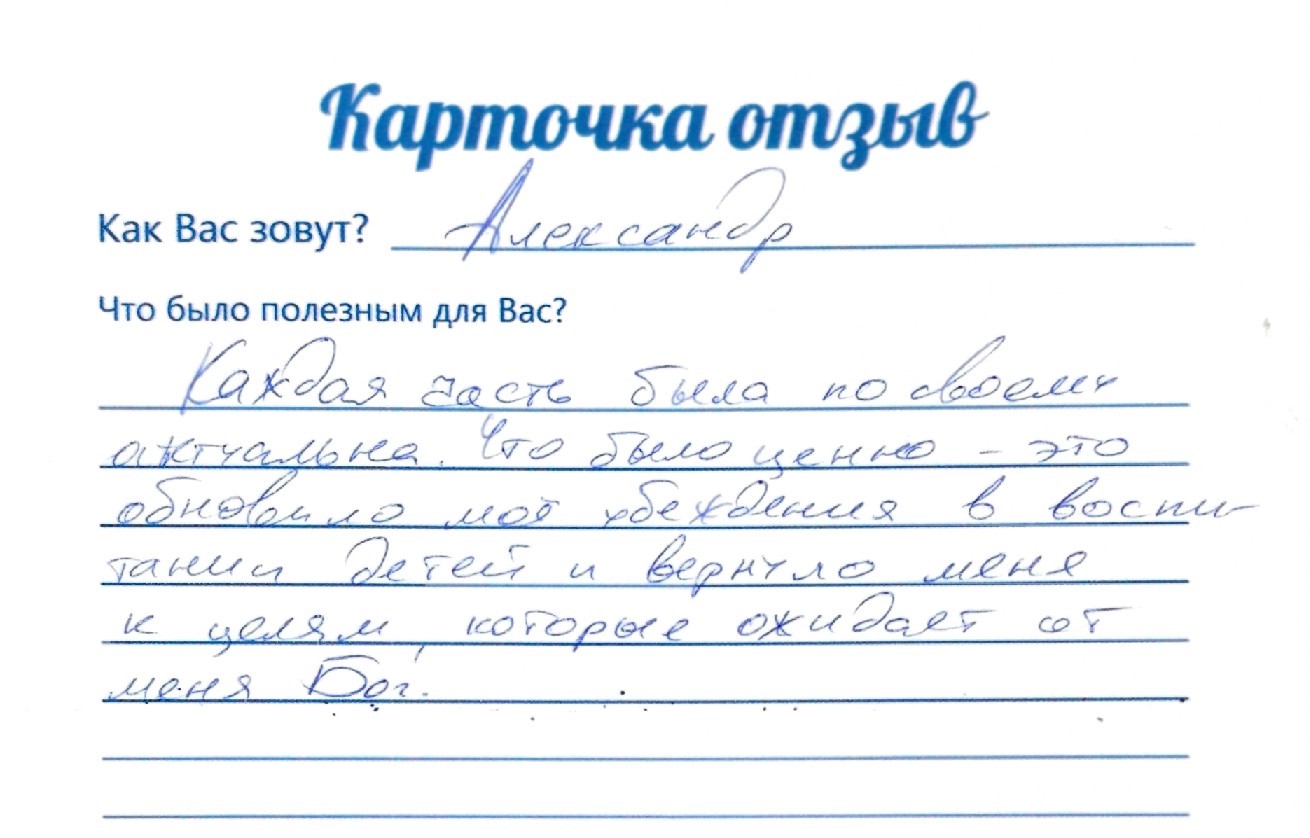 Карточка отзыв
Как Вас зовут? Александр
Что было полезным для Вас?
Каждая часть была по своему
актуальна. Что было ценно - это
обновило мои убеждения в воспи-
тании детей и вернуло меня
к целям, которые ожидает от
меня Бог.